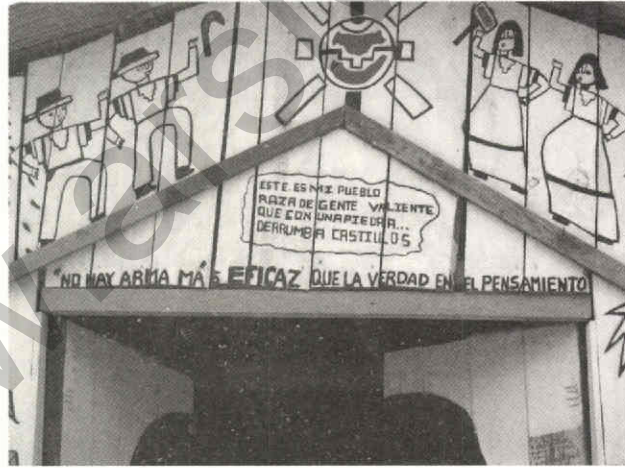 ESTE ES MI PUEBLO
RAZA DE GENTE VALIENTE
QUE CON UNA PIEDRA...
DERRUMBA CASTILLOS
"NO HAY ARMA MÁS EFICAZ QUE LA VERDAD EN EL PENSAMIENTO